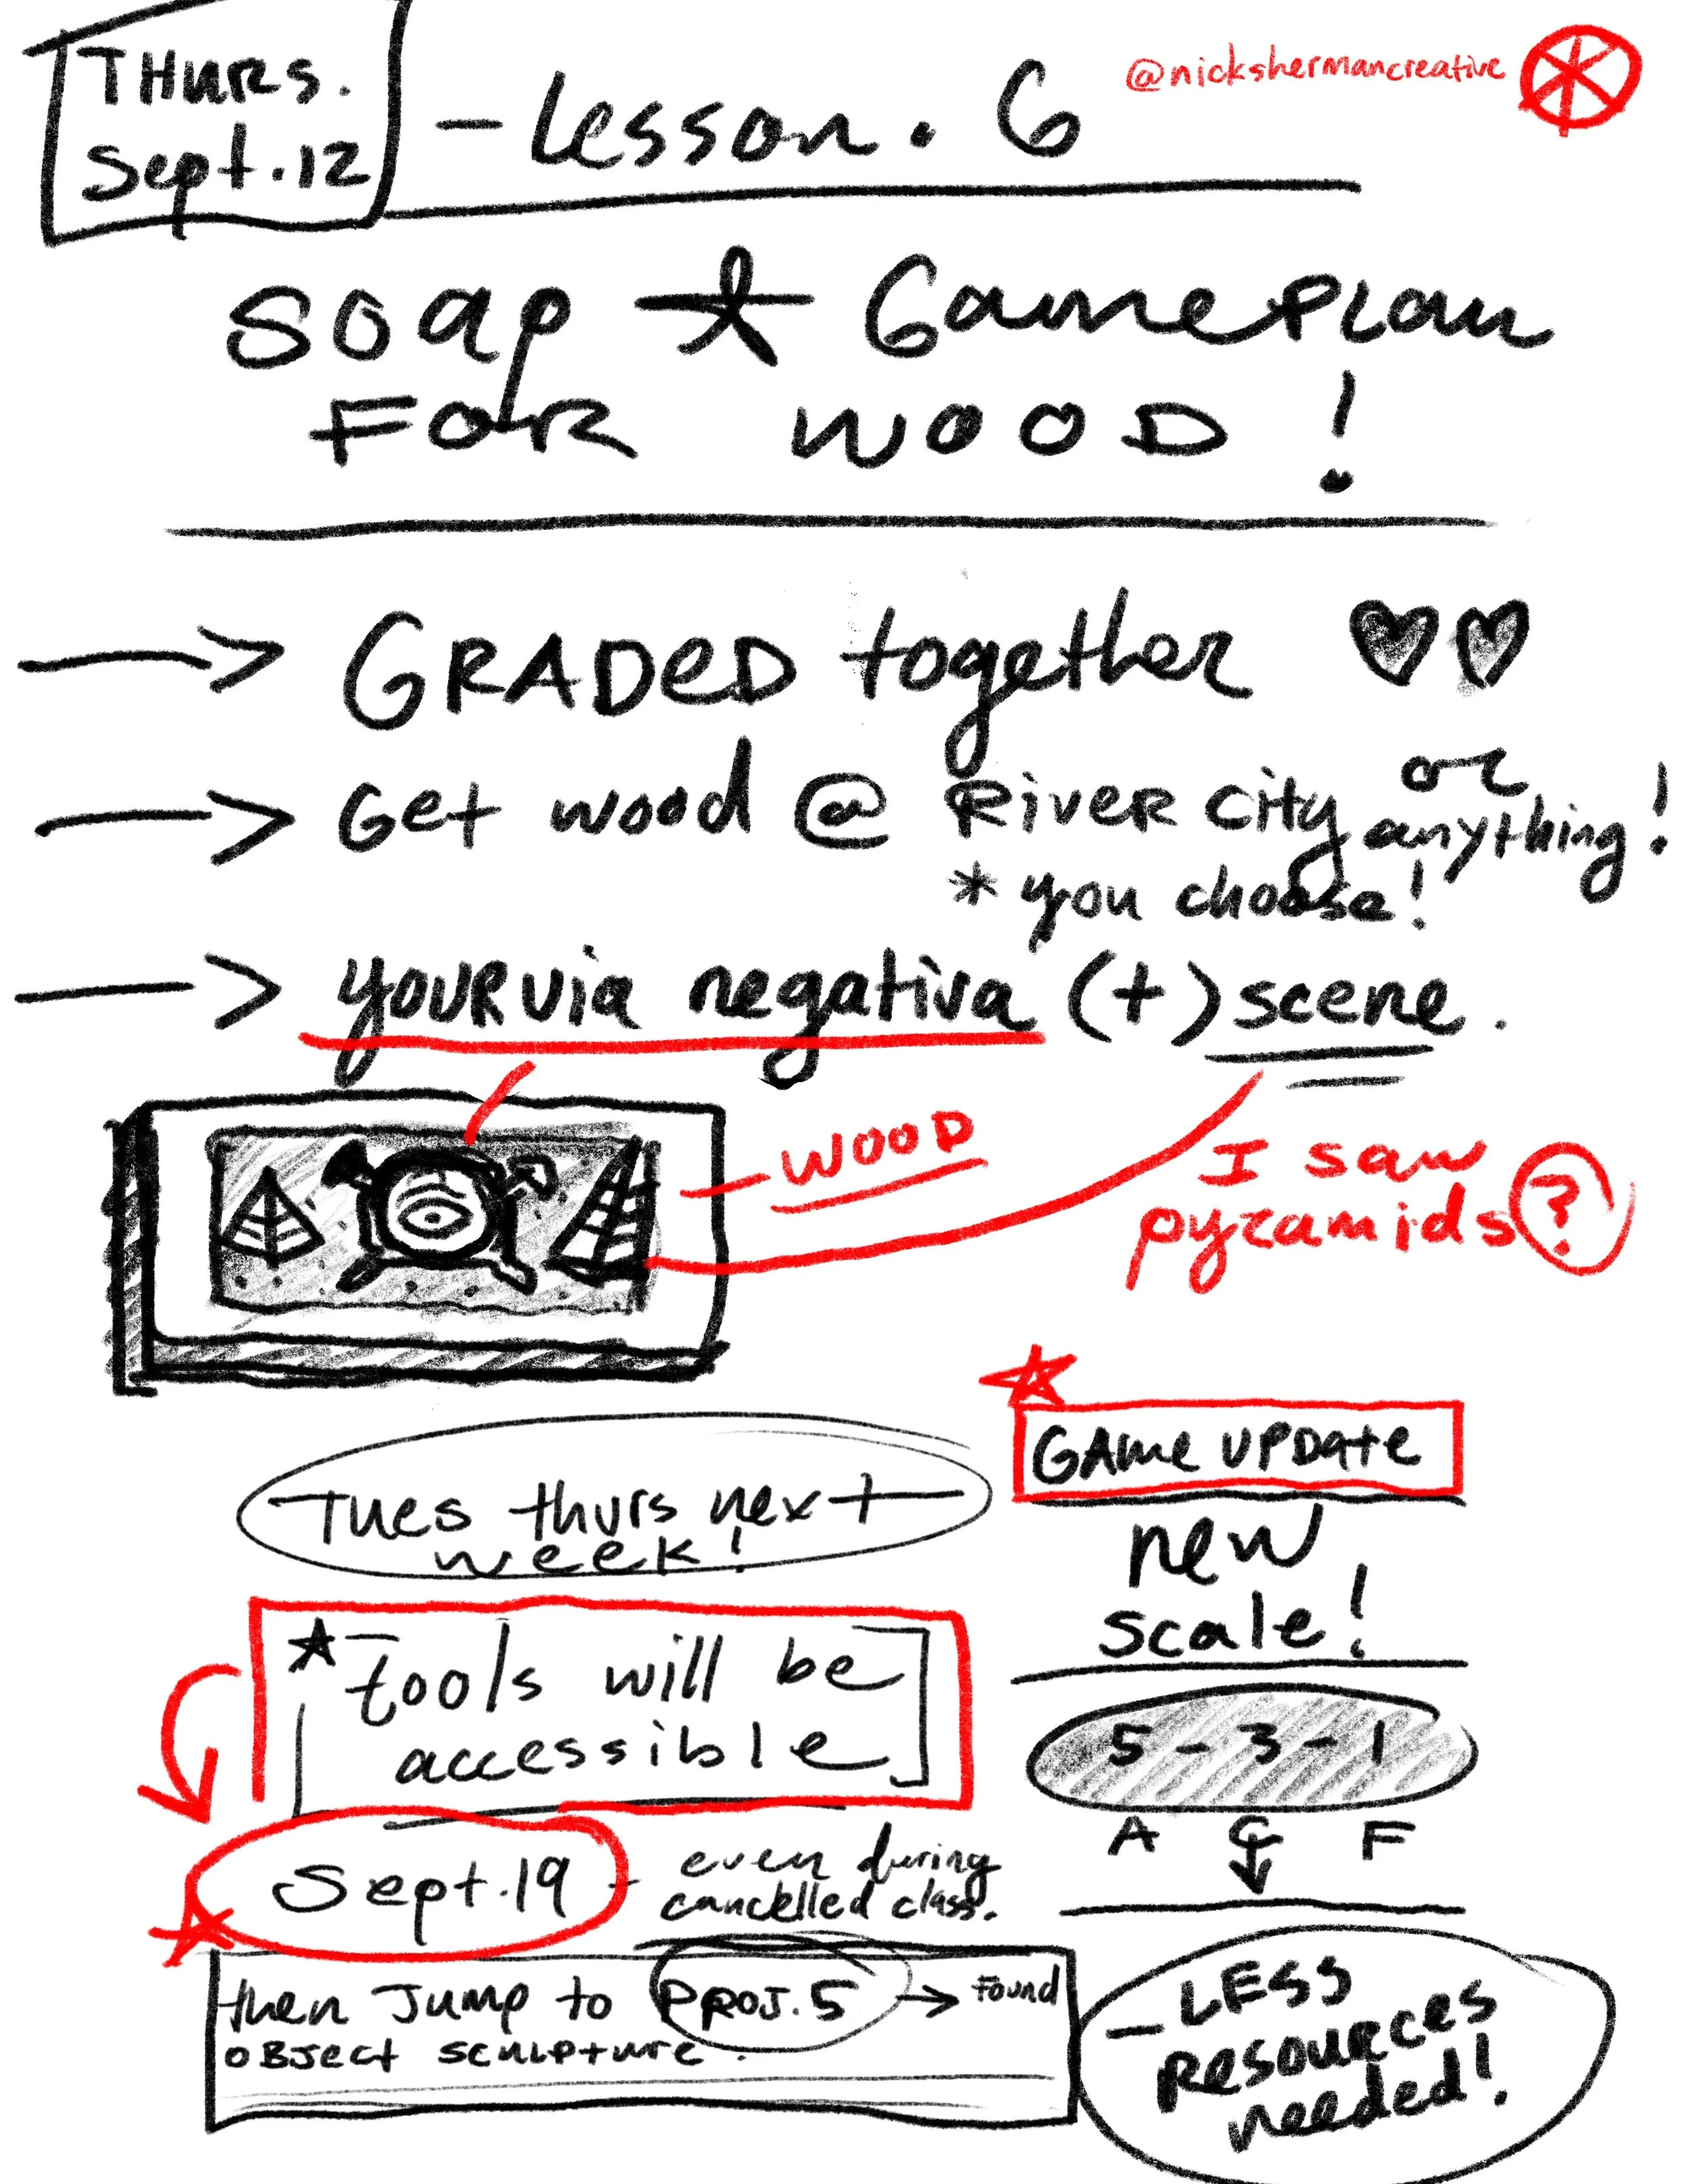 THURS.
Sept. 12
- Lesson. 6
@nickshermancreative
Soap ★ Gameplan
FOR WOOD!
→ GRADED together ♥♥
→ Get wood @ River City or
anything!
* you choose!
→ your via negativa (+) scene.
- WOOD
I saw
pyramids ?
GAME UPDATE
new
scale!
5 - 3 - 1
A C F
Tues thurs next
week!
★ tools will be
accessible
Sept. 19 - even during
cancelled class.
then Jump to PROJ. 5 → Found
OBJect sculpture.
- LESS
Resources
needed!